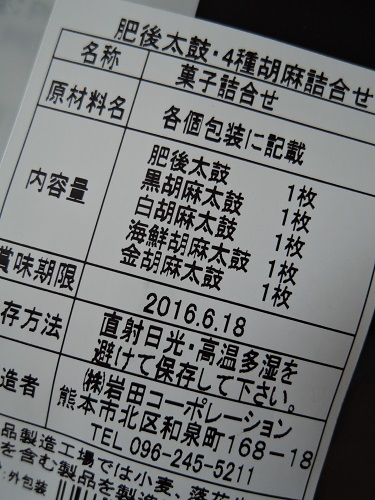 肥後太鼓・4種胡麻詰合せ
名称 菓子詰合せ
原材料名 各個包装に記載
内容量
肥後太鼓 1枚
黒胡麻太鼓 1枚
白胡麻太鼓 1枚
海鮮胡麻太鼓 1枚
金胡麻太鼓 1枚
賞味期限 2016.6.18
存方法 直射日光・高温多湿を
避けて保存して下さい。
造者 ㈱岩田コーポレーション
熊本市北区和泉町168-18
TEL 096-245-5211
品製造工場では小麦、落花
を含む製品を製造
:外包装